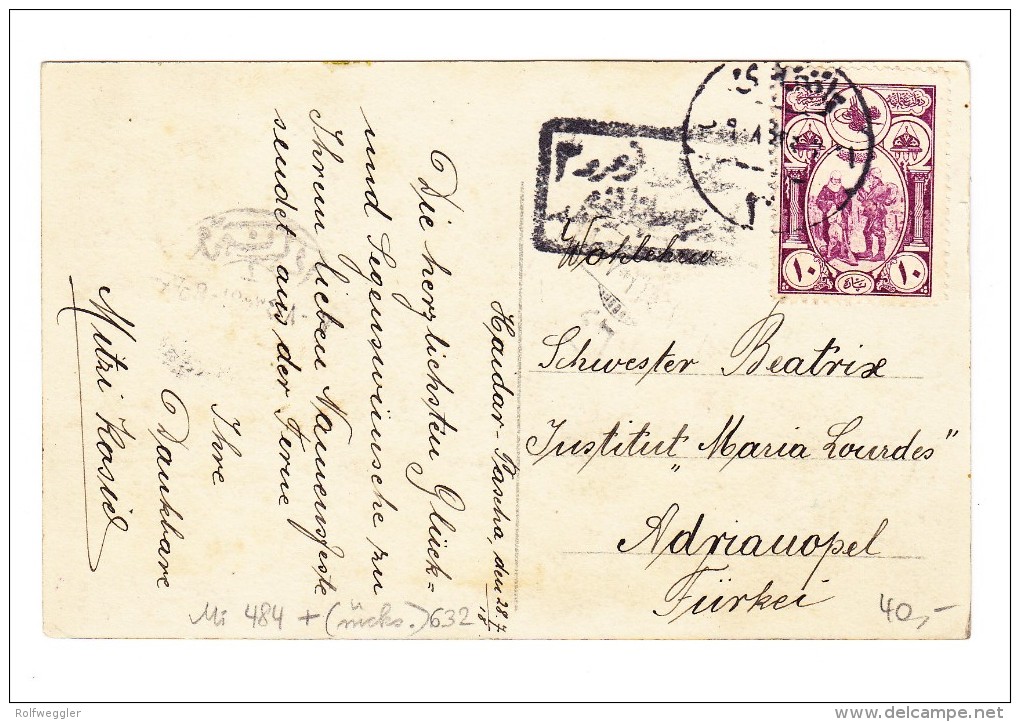 Haidar-Pascha, den 28.7.
18
Die herzlichsten Glück-
und Segenswünsche zu
Ihrem lieben Namensfeste
sendet aus der Ferne
Ihre
Dankbare
Mitzi
Schwester Beatrix
Institut „Maria Lourdes"
Adrianopel
Türkei
Mi 484 + (rücks.) 632
40,-
١٠
پاره
١٠
Rolfweggler
delcampe.net